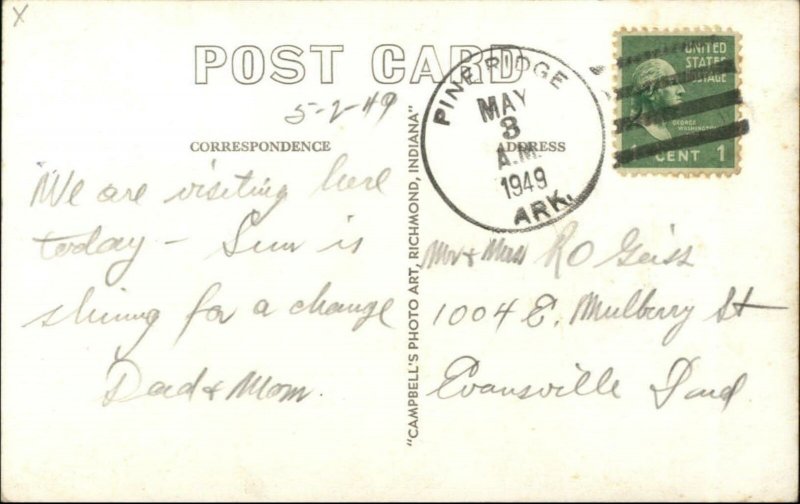 X
POST CARD
5-2-49
CORRESPONDENCE
ADDRESS
We are visiting here
today - Sun is
shining for a change
Dad & Mom.
"CAMPBELL'S PHOTO ART, RICHMOND, INDIANA"
PINE RIDGE
MAY
3
A.M.
1949
ARK.
UNITED
STATES
POSTAGE
GEORGE
WASHINGTON
1 CENT 1
Mr & Mrs R O Geiss
1004 E. Mulberry St
Evansville Ind